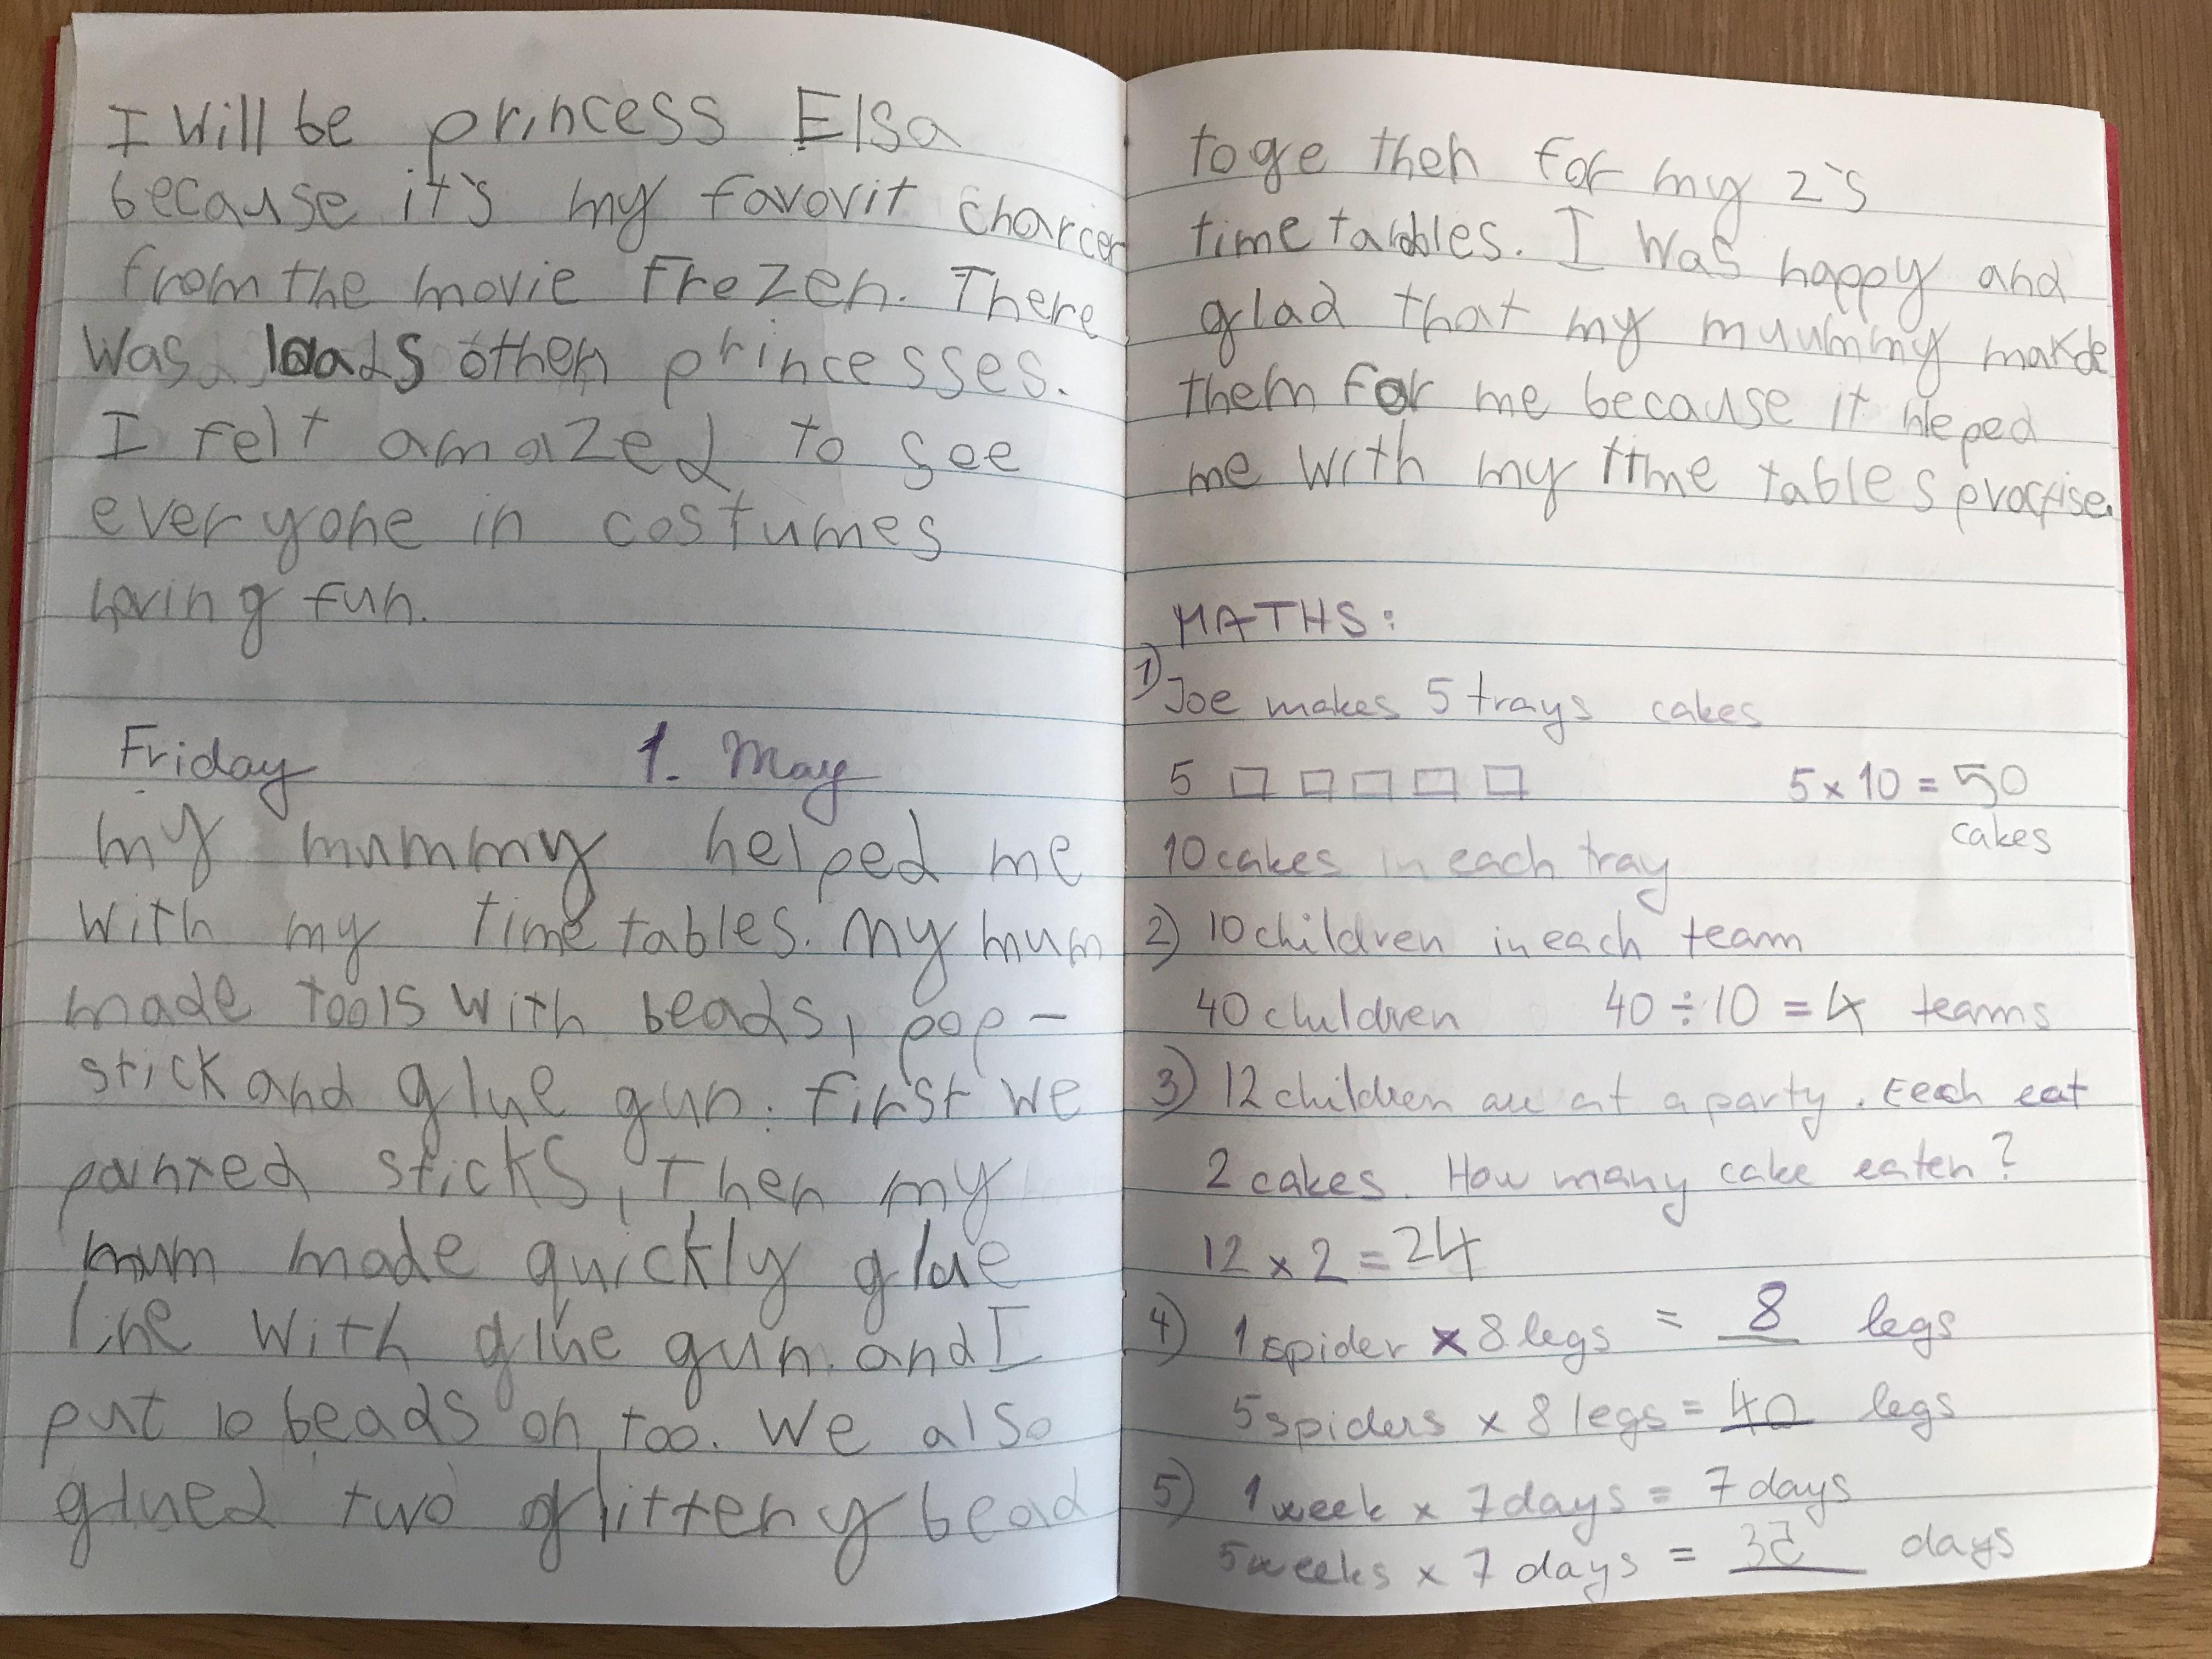 I will be princess Elsa
because it's my favorit charcer
from the movie Frozen. There
was loads other princesses.
I felt amazed to see
everyone in costumes
having fun.
Friday 1. May
my mummy helped me
with my time tables. My mum
made tools with beads, pop-
stick and glue gun. First we
painted sticks, Then my
mum made quickly glue
line with glue gun. and I
put 10 beads on too. We also
glued two glittery bead
toge ther for my 2's
time tables. I was happy and
glad that my muummy makde
them for me because it hleped
me with my time tables practise.
MATHS:
1) Joe makes 5 trays cakes
5 5 x 10 = 50
cakes
10 cakes in each tray
2) 10 children in each team
40 children 40 ÷ 10 = 4 teams
3) 12 children are at a party. Each eat
2 cakes. How many cake eaten?
12 x 2 = 24
4) 1 spider x 8 legs = 8 legs
5 spiders x 8 legs = 40 legs
5) 1 week x 7 days = 7 days
5 weeks x 7 days = 35 days